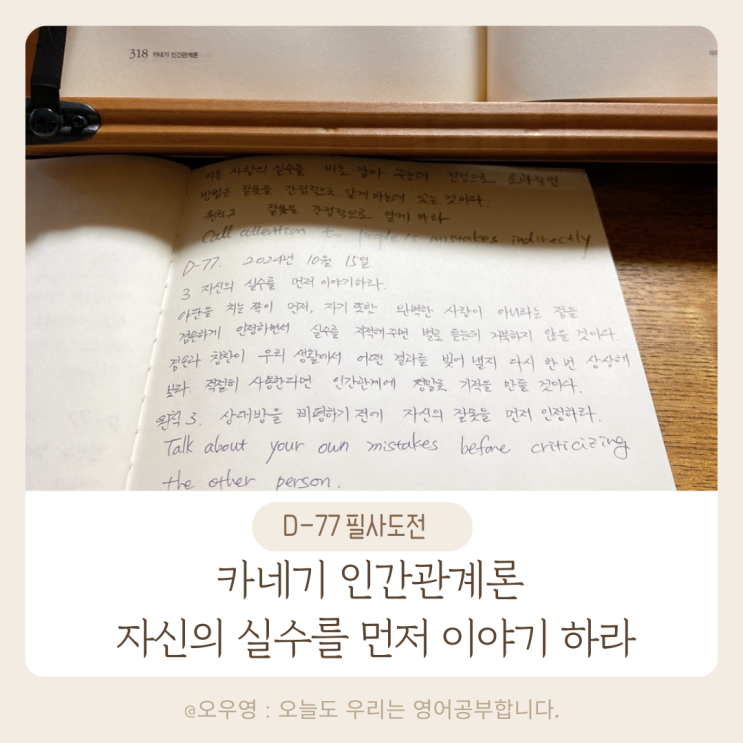 318 카네기 인간관계론
사람의 실수를 바로 잡아 주는데 진정으로 효과적인
방법은 잘못을 간접적으로 알게 하는데 있는 것이다.
원칙 2 잘못을 간접적으로 알게 하라
Call attention to people's mistakes indirectly
D-77. 2024년 10월 15일
3 자신의 실수를 먼저 이야기하라.
야단을 치는 쪽이 먼저, 자기 또한 완벽한 사람이 아니라는 점을
겸손하게 인정하면서 실수를 지적해주면 별로 듣는데 거북하지 않을 것이다.
겸손과 칭찬이 우리 생활에서 어떤 결과를 빚어 낼지 다시 한 번 상상해
보라. 적절히 사용한다면 인간관계에 정말로 기적을 만들 것이다.
원칙 3. 상대방을 비평하기 전에 자신의 잘못을 먼저 인정하라.
Talk about your own mistakes before criticizing
the other person.
D-77 필사도전
카네기 인간관계론
자신의 실수를 먼저 이야기 하라
@오우영 : 오늘도 우리는 영어공부합니다.